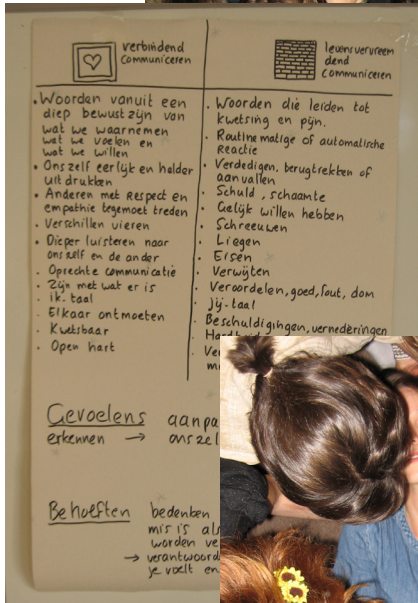 verbindend
communiceren
Woorden vanuit een
diep bewustzijn van
wat we waarnemen
wat we voelen en
wat we willen
Onszelf eerlijk en helder
uitdrukken
Anderen met Respect en
empathie tegemoet treden
Verschillen vieren
Dieper luisteren naar
onszelf en de ander
Oprechte communicatie
Zijn met wat er is
ik.taal
Elkaar ontmoeten
Kwetsbaar
Open hart
levensvervreem
dend
communiceren
Woorden die leiden tot
kwetsing en pijn.
Routinematige of automatische
Reactie
Verdedigen, terugtrekken of
aanvallen
Schuld, schaamte
Gelijk willen hebben
Schreeuwen
Liegen
Eisen
Verwijten
Veroordelen, goed, fout, dom
Jij-taal
Beschuldigingen, vernederingen
Gevoelens aanpa
erkennen → onszel
Behoeften bedenken
mis is als
worden ve
→ verantwoord
je voelt en